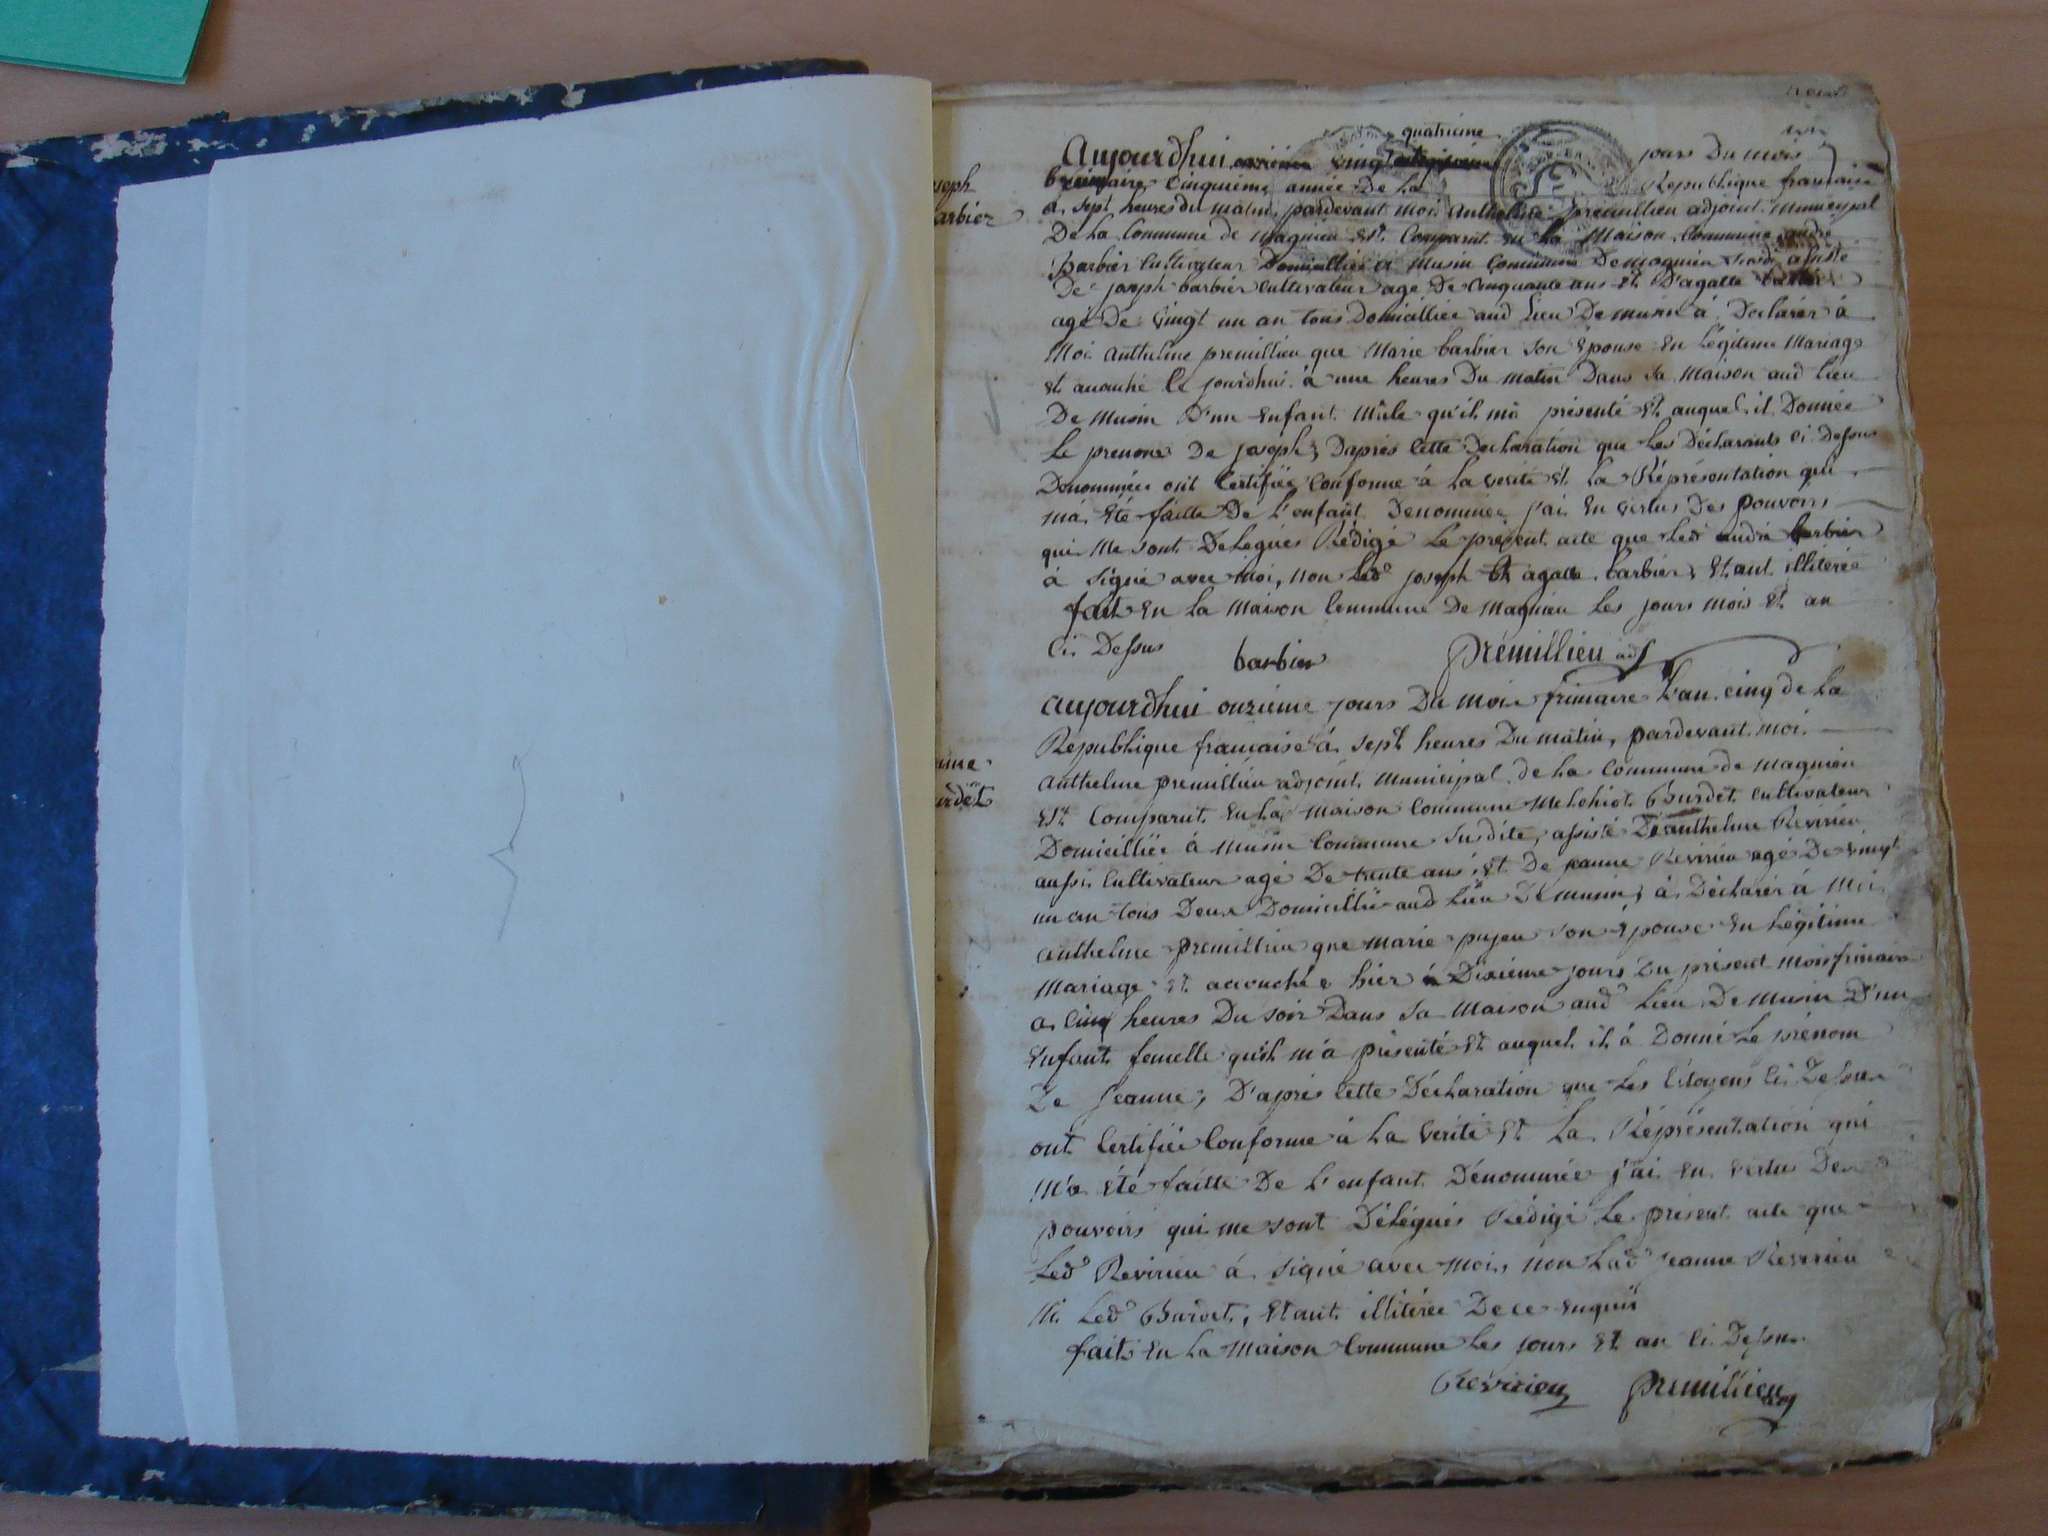 quatrieme
Aujourdhui vingt jours Du mois
brumaire Cinquieme année De La Republique francaise
a sept heures du matin pardevant moi Anthelme premillieu adjoint Municipal
De La Commune de magnieu Est Comparut en la Maison Commune andré
barbier Cultivateur Domicillier a Musin Commune De magnieu assisté
De joseph barbier Cultivateur age De Cinquante ans Et D'agatte barbier
agé De Vingt un an tous Domicilliée aud Lieu De musin à Declarér à
Moi Anthelme premillieu que Marie barbier Son Epouse En Légitime Mariage
Et acouché Ce jourdhui à une heures Du Matin Dans Sa Maison aud Lieu
De Musin D'un Enfant Mâle qu'il mà présenté Et auquel il Donnée
Le prenome De joseph, Daprès Cette Declaration que Les Déclarants Ci Dessus
Denommée ont Certifiée Conforme à La verité Et La Réprésentation qui
mà Eté faitte De L'enfant Denominée j'ai En Vertus Des pouvoirs
qui Me sont Délegués Rédigé Le present acte que Led andré barbier
à Signé avec Moi, non Led joseph Et agatte barbier, Etant illitérée
fait En La Maison Commune De Magnieu Les jours Mois Et an
Ci Dessus
barbier Prémillieu adj
aujourdhui onzieme jours Du Mois frimaire L'an cinq de La
République francaise à sept heures Du matin, pardevant moi
Anthelme premillieu adjoint Municipal de La Commune de Magnieu
Est Comparut En La Maison Commune Melchiot Burdet cultivateur
Domicilliée à Musin Commune Susdite, assisté D'anthelme Revirieu
aussi Cultivateur agé De trente ans Et De jeanne Revirieu agé De vingt
un an tous Deux Domicillié aud Lieu De musin, à Déclarér à Moi
Anthelme premillieu que Marie pujeu son Epouse En Légitime
Mariage Et acouchée hier Dixieme jours Du présent Mois frimaire
a Cinq heures Du soir Dans sa Maison aud Lieu De Musin D'un
Enfant femelle quil m'à présenté Et auquel il à Donné Le prénom
De Jeanne, D'après Cette Déclaration que Les Citoyens Ci Dessus
ont Certifiée Conforme à La Verité Et La Réprésentation qui
M'a Eté faitte De L'enfant Dénommée j'ai En vertus Des
pouvoirs qui me sont Délégués Rédigé Le présent acte que
Led Revirieu à Signé avec Moi, non Lad jeanne Revirieu
Ni Led Burdet, Etant illitérée De ce Enquis
fait En La Maison Commune Les jours Et an Ci Dessus
Revirieu premillieu adj